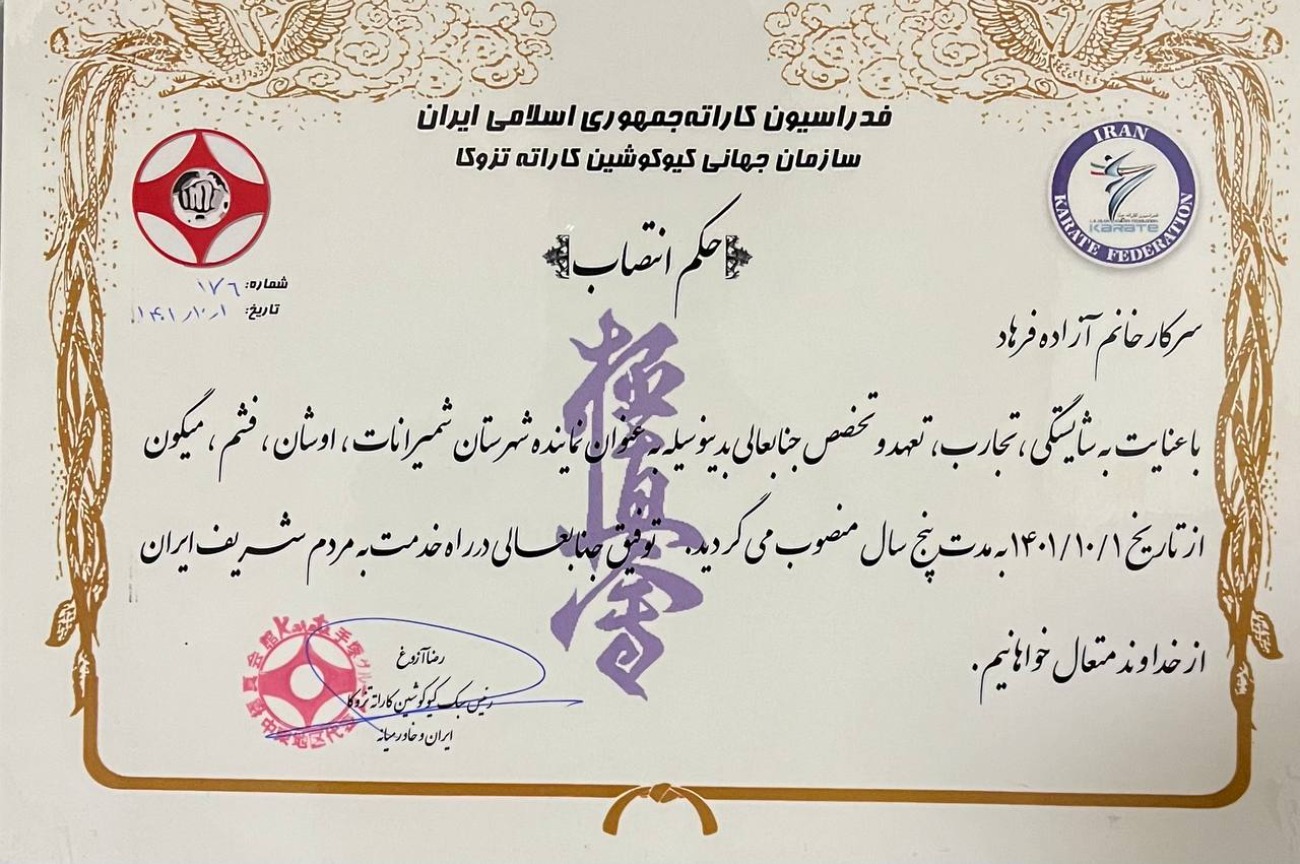 فدراسیون کاراته‌جمهوری اسلامی ایران
سازمان جهانی کیوکوشین کاراته تزوکا
IRAN
KARATE FEDERATION
KARATE
حکم انتصاب
شماره: ۱۷۶
تاریخ: ۱۴۰۱/۱۰/۱
سرکار خانم آزاده فرهاد
با عنایت به شایستگی ، تجارب، تعهد و تخصص جنابعالی بدینوسیله به عنوان نماینده شهرستان شمیرانات ، اوشان ، فشم ، میگون
از تاریخ ۱۴۰۱/۱۰/۱ به مدت پنج سال منصوب می گردید. توفیق جنابعالی در راه خدمت به مردم شریف ایران
از خداوند متعال خواهانیم .
極真會
رضا آزوغ
رئیس سبک کیوکوشین کاراته تزوکا
ایران و خاورمیانه